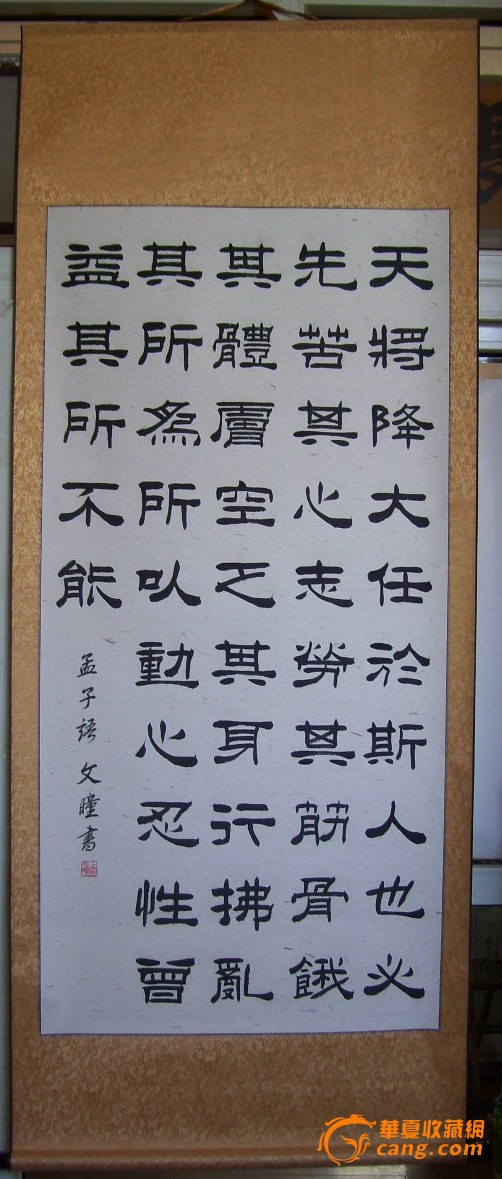 天將降大任於斯人也必
先苦其心志勞其筋骨餓
其體膚空乏其身行拂亂
其所為所以動心忍性曾
益其所不能
孟子語 文瞳書
華夏收藏網
cang.com